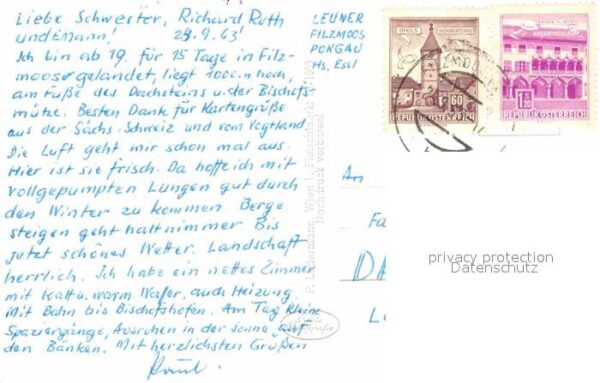 Liebe Schwester, Richard Roth
und Mann! 23.9.63
Ich bin ab 19. für 15 Tage in Filz-
moos gelandet, liegt 1000m hoch,
am Fuße des Dachsteins u. der Bischofs-
mütze. Besten Dank für Kartengrüße
aus der Sächs. Schweiz und vom Vogtland.
Die Luft geht mir schon mal aus.
Hier ist sie frisch. Da hoffe ich mit
vollgepumpten Lungen gut durch
den Winter zu kommen. Berge
steigen geht halt nimmer Bis
jetzt schönes Wetter. Landschaft
herrlich. Ich habe ein nettes Zimmer
mit kalt u. warm. Waßer, auch Heizung.
Mit Bahn bis Bischofshofen. Am Tag kleine
Spaziergänge, Ausruhen in der Sonne auf
den Bänken. Mit herzlichsten Grüßen
LEUNER
FILZMOOS
PONGAU
Hs. Essl
Wien I
Nachdruck verboten
1.60
REPUBLIK ÖSTERREICH
1.20
REPUBLIK ÖSTERREICH
An
Fa
DA
L
privacy protection
Datenschutz